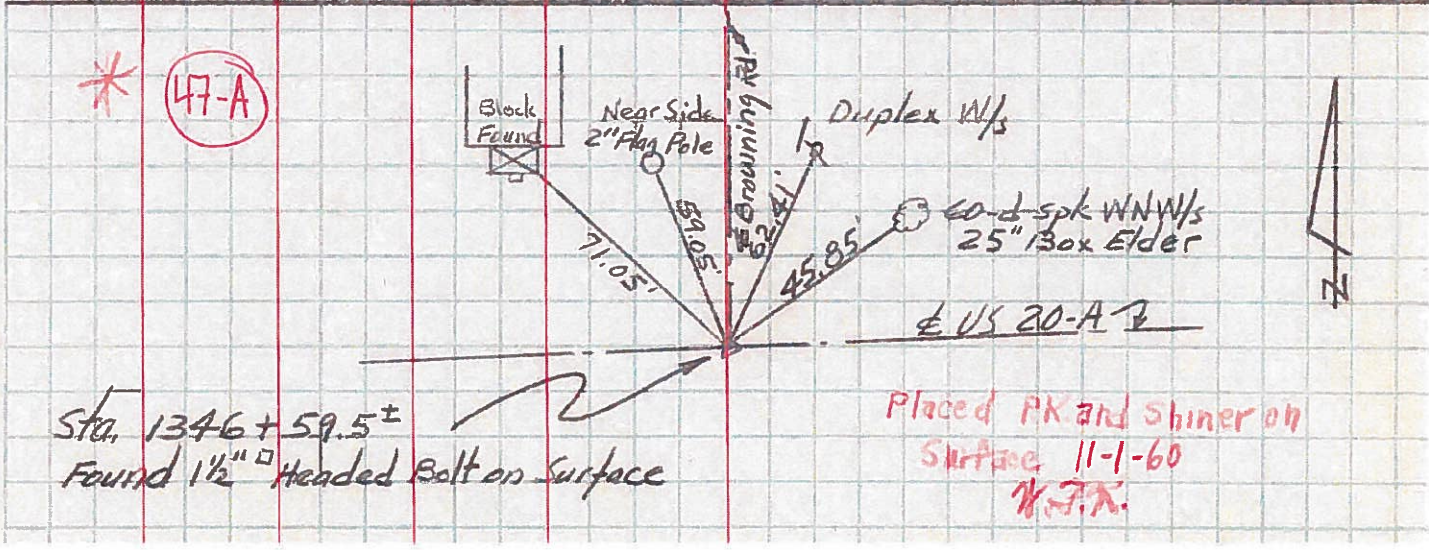 47-A
Block
Found
Near Side
2" Flag Pole
℄ Browning Rd
Duplex W/s
60-d-spk WNW/s
25" Box Elder
71.05'
59.05'
62.41'
45.85'
℄ US 20-A
N
Sta. 1346+59.5±
Found 1½"□ Headed Bolt on Surface
Placed PK and Shiner on
Surface 11-1-60